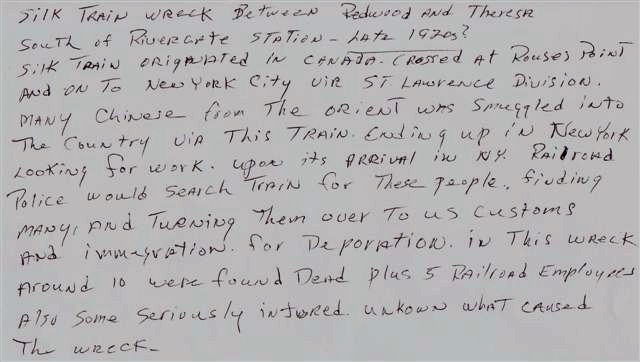 Silk Train wreck Between Redwood And Theresa
South of Rivergate Station - Late 1920s?
Silk Train origanated in CANADA. Crossed at Rouses Point
And on To New York City via St Lawrence Division.
Many Chinese from The orient was smuggled into
The Country via This Train. Ending up in New York
Looking for work. upon its arrival in NY. Railroad
Police would search Train for These people, finding
many, And Turning Them over To US Customs
And immagration. for Deporation. in This wreck
Around 10 were found Dead plus 5 Railroad Employees
Also some seriously intjured. unkown what caused
The wreck-